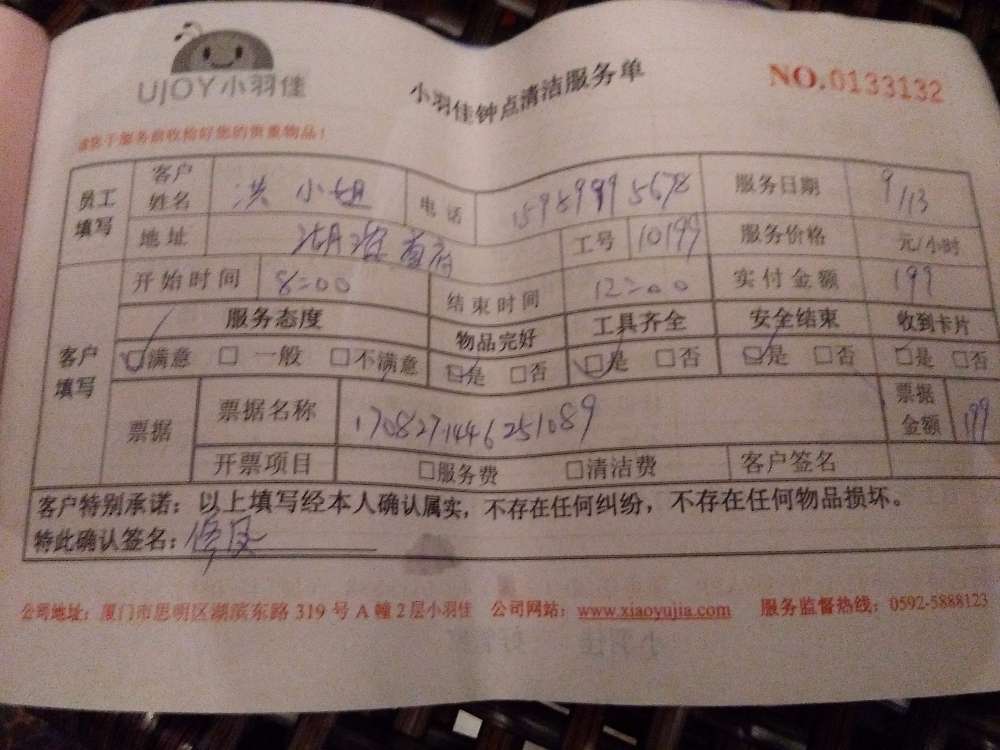 UJOY小羽佳
小羽佳钟点清洁服务单
NO.0133132
请您于服务前收捡好您的贵重物品！
员工填写 客户姓名 洪小姐 电话 15959995678 服务日期 9/13
地址 湖滨首府 工号 10199 服务价格 元/小时
客户填写 开始时间 8:00 结束时间 12:00 实付金额 199
服务态度 物品完好 工具齐全 安全结束 收到卡片
☑满意 □一般 □不满意 ☑是 □否 ☑是 □否 ☑是 □否 □是 □否
票据 票据名称 1708271446251089 票据金额 199
开票项目 □服务费 □清洁费 客户签名
客户特别承诺：以上填写经本人确认属实，不存在任何纠纷，不存在任何物品损坏。
特此确认签名：
公司地址：厦门市思明区湖滨东路 319 号 A 幢 2 层小羽佳 公司网站：www.xiaoyujia.com 服务监督热线：0592-5888123